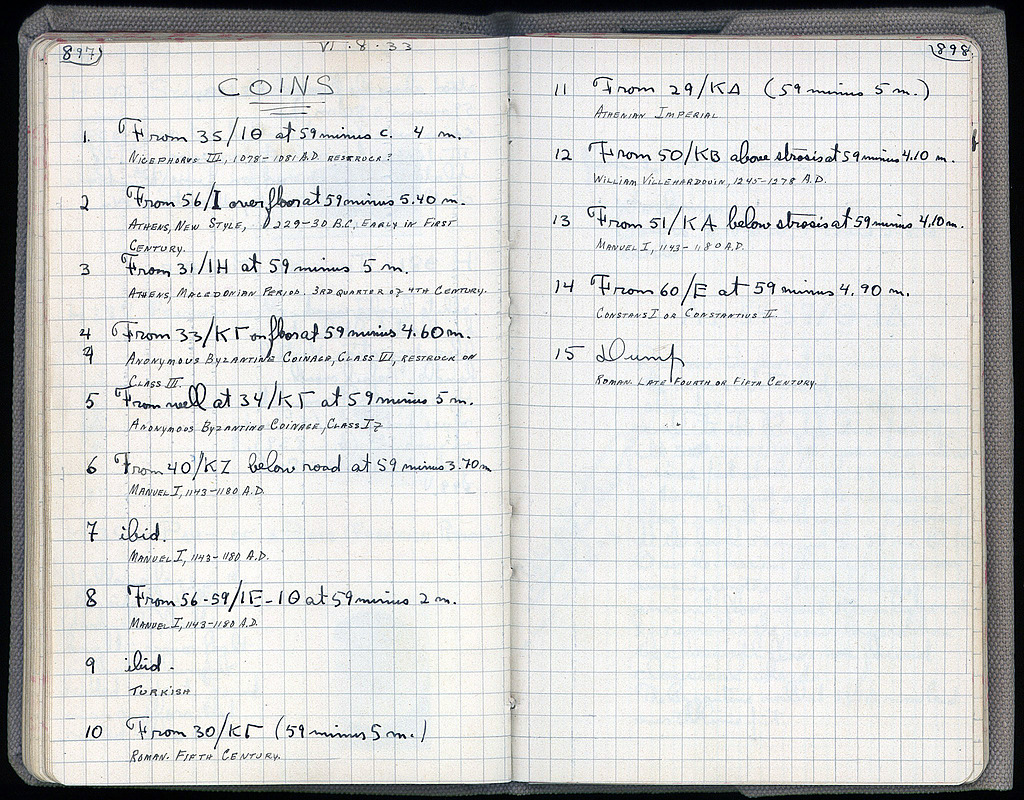 897
VI . 8 . 33
COINS
1. From 35/ΙΘ at 59 minus c. 4 m.
NICEPHORUS III, 1078-1081 A.D. RESTRUCK?
2 From 56/I over floor at 59 minus 5.40 m.
ATHENS, NEW STYLE, 229-30 B.C., EARLY IN FIRST
CENTURY.
3 From 31/ΙΗ at 59 minus 5 m.
ATHENS, MACEDONIAN PERIOD. 3RD QUARTER OF 4TH CENTURY.
4 From 33/ΚΓ on floor at 59 minus 4.60 m.
4 ANONYMOUS BYZANTINE COINAGE, CLASS VI, RESTRUCK ON
CLASS III.
5 From well at 34/ΚΓ at 59 minus 5 m.
ANONYMOUS BYZANTINE COINAGE, CLASS I
6 From 40/ΚΖ below road at 59 minus 3.70 m
MANUEL I, 1143-1180 A.D.
7 ibid.
MANUEL I, 1143-1180 A.D.
8 From 56-59/ΙΕ-ΙΘ at 59 minus 2 m.
MANUEL I, 1143-1180 A.D.
9 ibid.
TURKISH
10 From 30/ΚΓ (59 minus 5 m.)
ROMAN. FIFTH CENTURY.
898
11 From 29/ΚΔ (59 minus 5 m.)
ATHENIAN IMPERIAL
12 From 50/ΚΒ above strosis at 59 minus 4.10 m.
WILLIAM VILLEHARDOUIN, 1245-1278 A.D.
13 From 51/ΚΑ below strosis at 59 minus 4.10 m.
MANUEL I, 1143-1180 A.D.
14 From 60/Ε at 59 minus 4.90 m.
CONSTANS I OR CONSTANTIUS II.
15 Dump
ROMAN. LATE FOURTH OR FIFTH CENTURY.